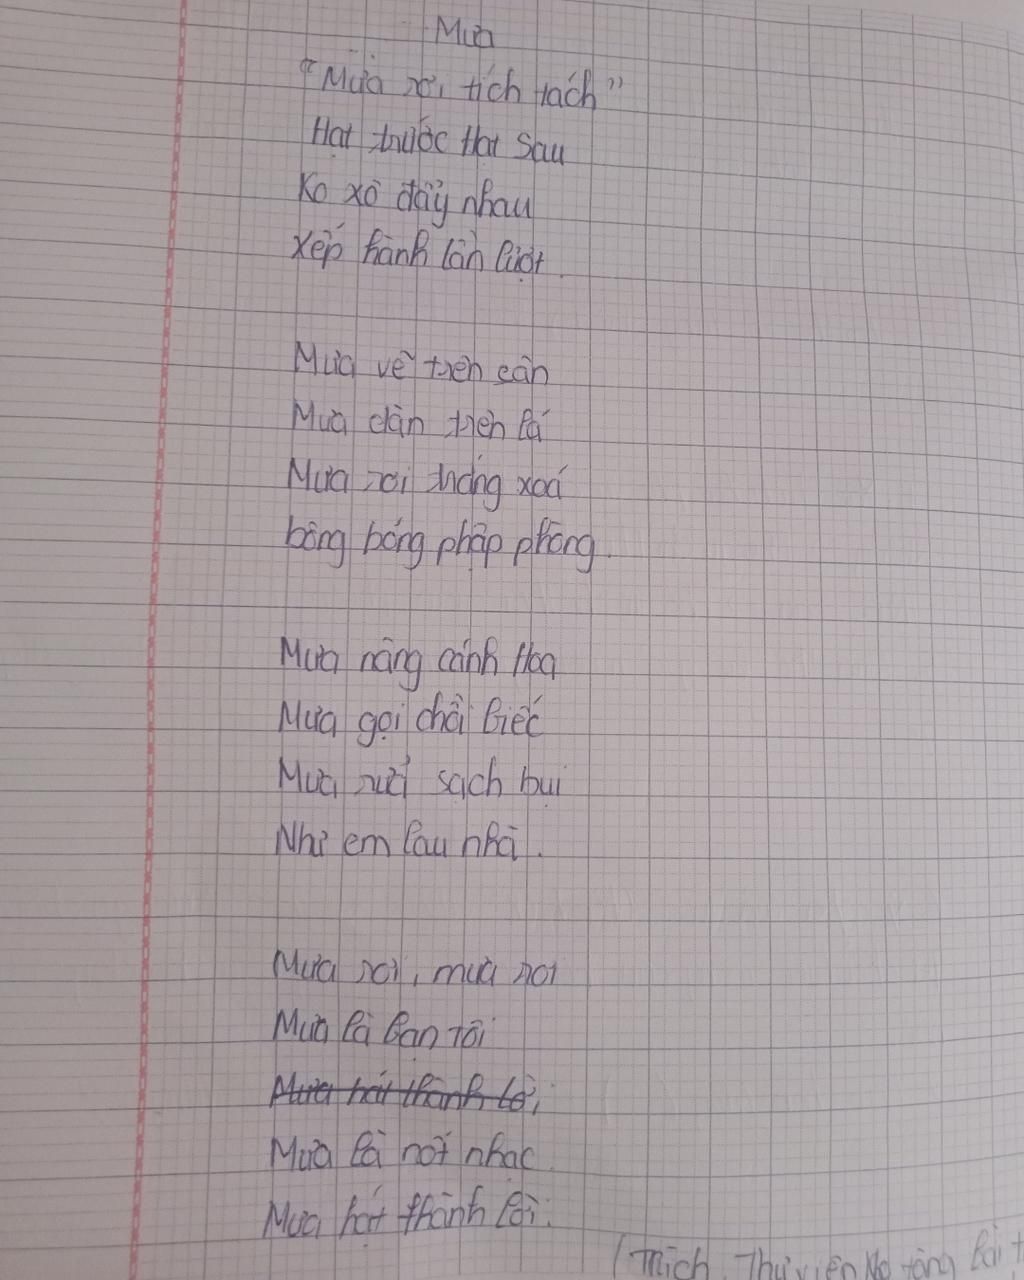 Mưa
"Mưa rơi tích tách"
Hạt trước Hạt Sau
Ko xô đẩy nhau
xếp hành lần lượt.
Mưa vẽ trên sân
Mưa dàn trên lá
Mưa rơi trắng xoá
bông bóng phập phồng.
Mưa nâng cánh Hoa
Mưa gọi chồi biếc
Mưa rửa sạch bụi
Như em lau nhà.
Mưa rơi, mưa rơi
Mưa là bạn tôi
Mưa hát thành lời
Mưa là nốt nhạc
Mưa hát thành lời.
(Trích Thư viện